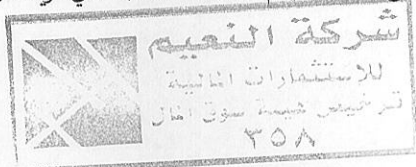 شركة النعيم
للاستثمارات المالية
ترخيص هيئة سوق المال
٣٥٨